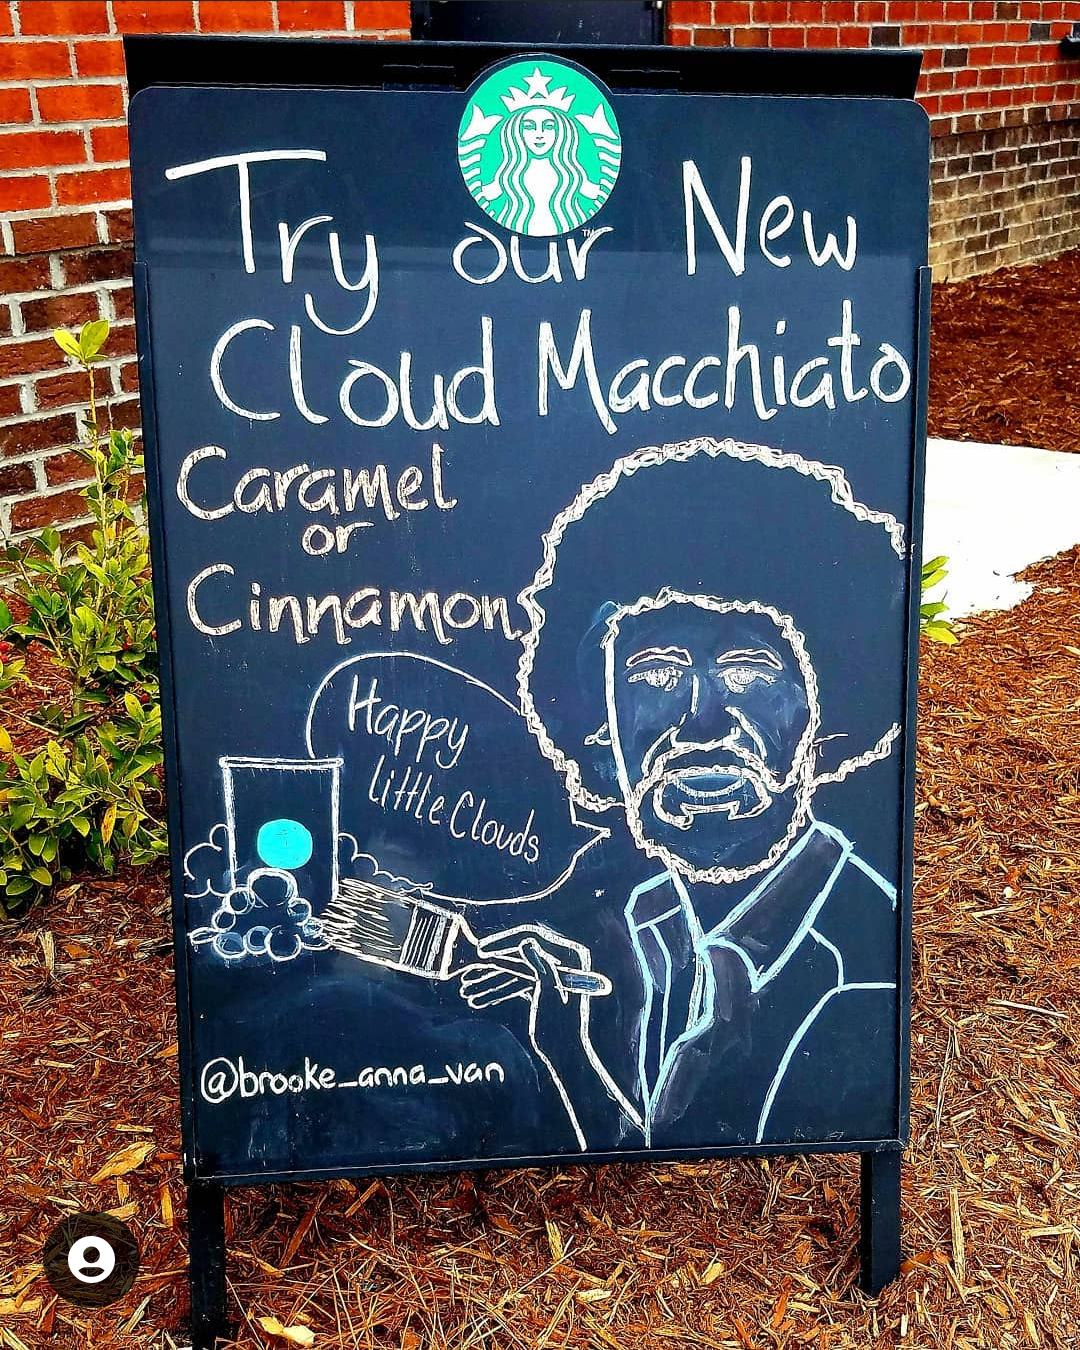 Try our New
Cloud Macchiato
Caramel
or
Cinnamon
Happy
little Clouds
@brooke_anna_van
TM